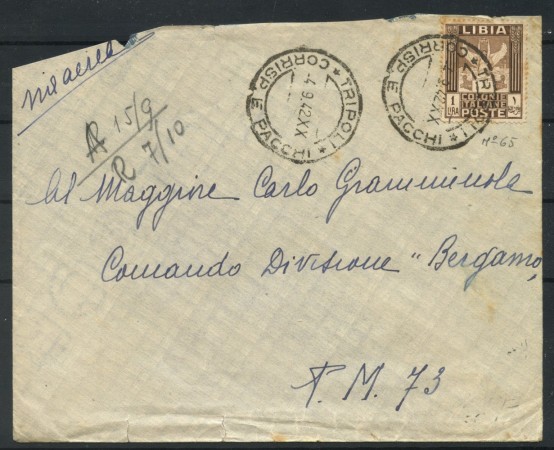 via aerea
A 15/9
R 7/10
TRIPOLI * CORRISP. E PACCHI *
4.9.42.XX
TRIPOLI * CORRISP. E PACCHI *
9.42.XX
LIBIA
COLONIE
ITALIANE
1 LIRA POSTE ١
Nº 65
Al Maggiore Carlo Gramminola
Comando Divisione "Bergamo"
P. M. 73